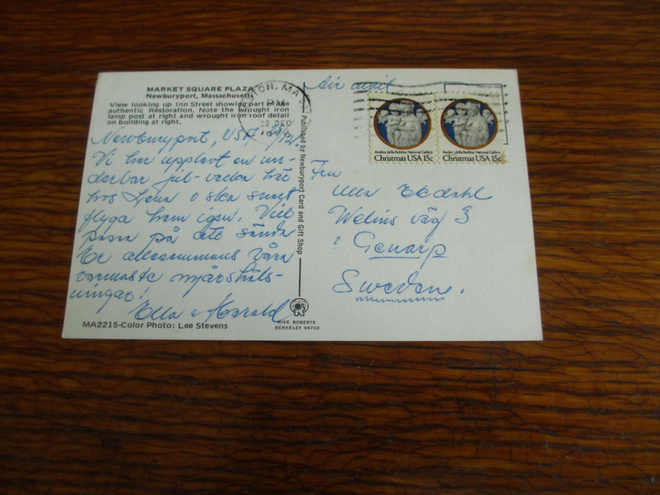 MARKET SQUARE PLAZA
Newburyport, Massachusetts
View looking up Inn Street showing part of the
authentic Restoration. Note the wrought iron
lamp post at right and wrought iron roof detail
on building at right.
Newburyport, USA
Vi har upplevt en un-
derbar jul-vecka här
hos o ska snart
flyga hem igen. Vill
passa på att sända
Er allesammans våra
varmaste nyårshäls-
ningar!
Ella & Harald
MA2215-Color Photo: Lee Stevens
Published by Newburyport Card and Gift Shop
MIKE ROBERTS
BERKELEY 94710
Air mail
PM
DEC
Andrea della Robbia, National Gallery
Christmas USA 15c
Andrea della Robbia, National Gallery
Christmas USA 15c
Fru
Ulla Ekdahl
Welins väg 3
Genarp
Sweden.